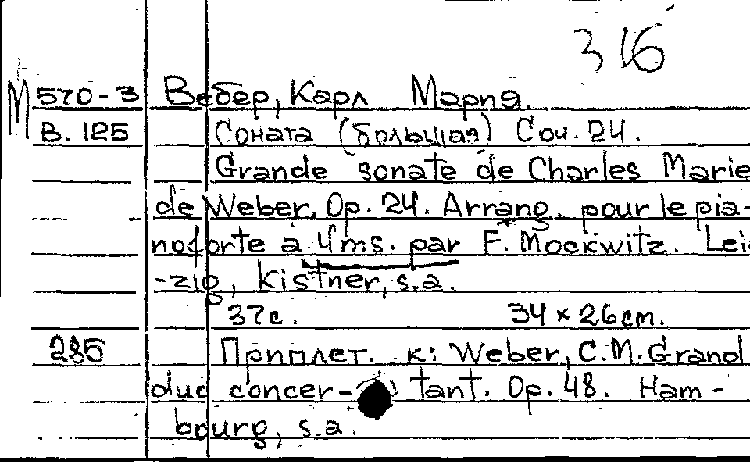 316
М 570-3 Вебер, Карл Мария.
В. 125 Соната (большая) Соч. 24.
Grande sonate de Charles Marie
de Weber. Op. 24. Arrang. pour le pia-
noforte a 4 ms. par F. Mockwitz. Lei
-zig, Kistner, s.a.
37 с. 34 × 26 cm.
235 Приплет. к: Weber, C.M. Grand
duo concer- tant. Op. 48. Ham-
bourg, s.a.